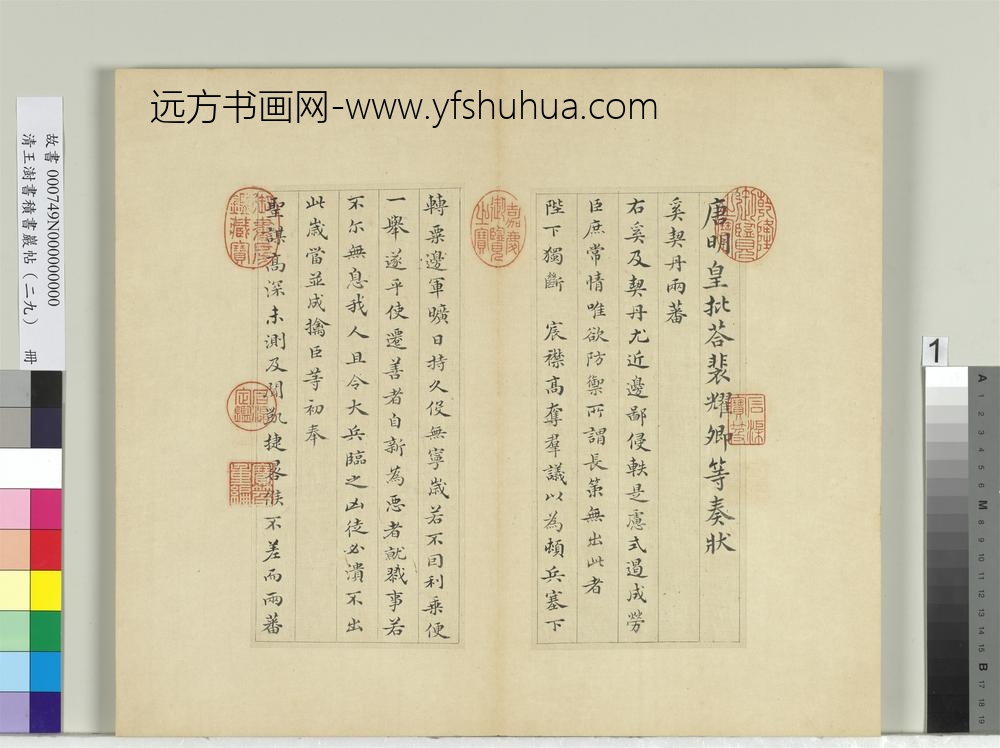 远方书画网-www.yfshuhua.com
唐明皇批荅裴耀卿等奏狀
奚契丹兩蕃
右奚及契丹尤近邊鄙侵軼是慮式遏成勞
臣庶常情唯欲防禦所謂長策無出此者
陛下獨斷 宸襟高奪羣議以為頓兵塞下
轉粟邊軍曠日持久役無寧歲若不因利乘便
一舉遂平使遷善者自新為惡者就戮事若
不尔無息我人且令大兵臨之凶徒必潰不出
此歲當並成擒臣等初奉
聖謀高深未測及聞凱捷晷候不差而兩蕃
乾隆御覽之寶
嘉慶御覽之寶
石渠寶笈
石渠定鑑
寶笈重編
故書 000749N000000000
清王澍書積書巖帖（二九） 冊
1
A 1 2 3 4 5 6 M 8 9 10 11 12 13 14 15 B 17 18 19